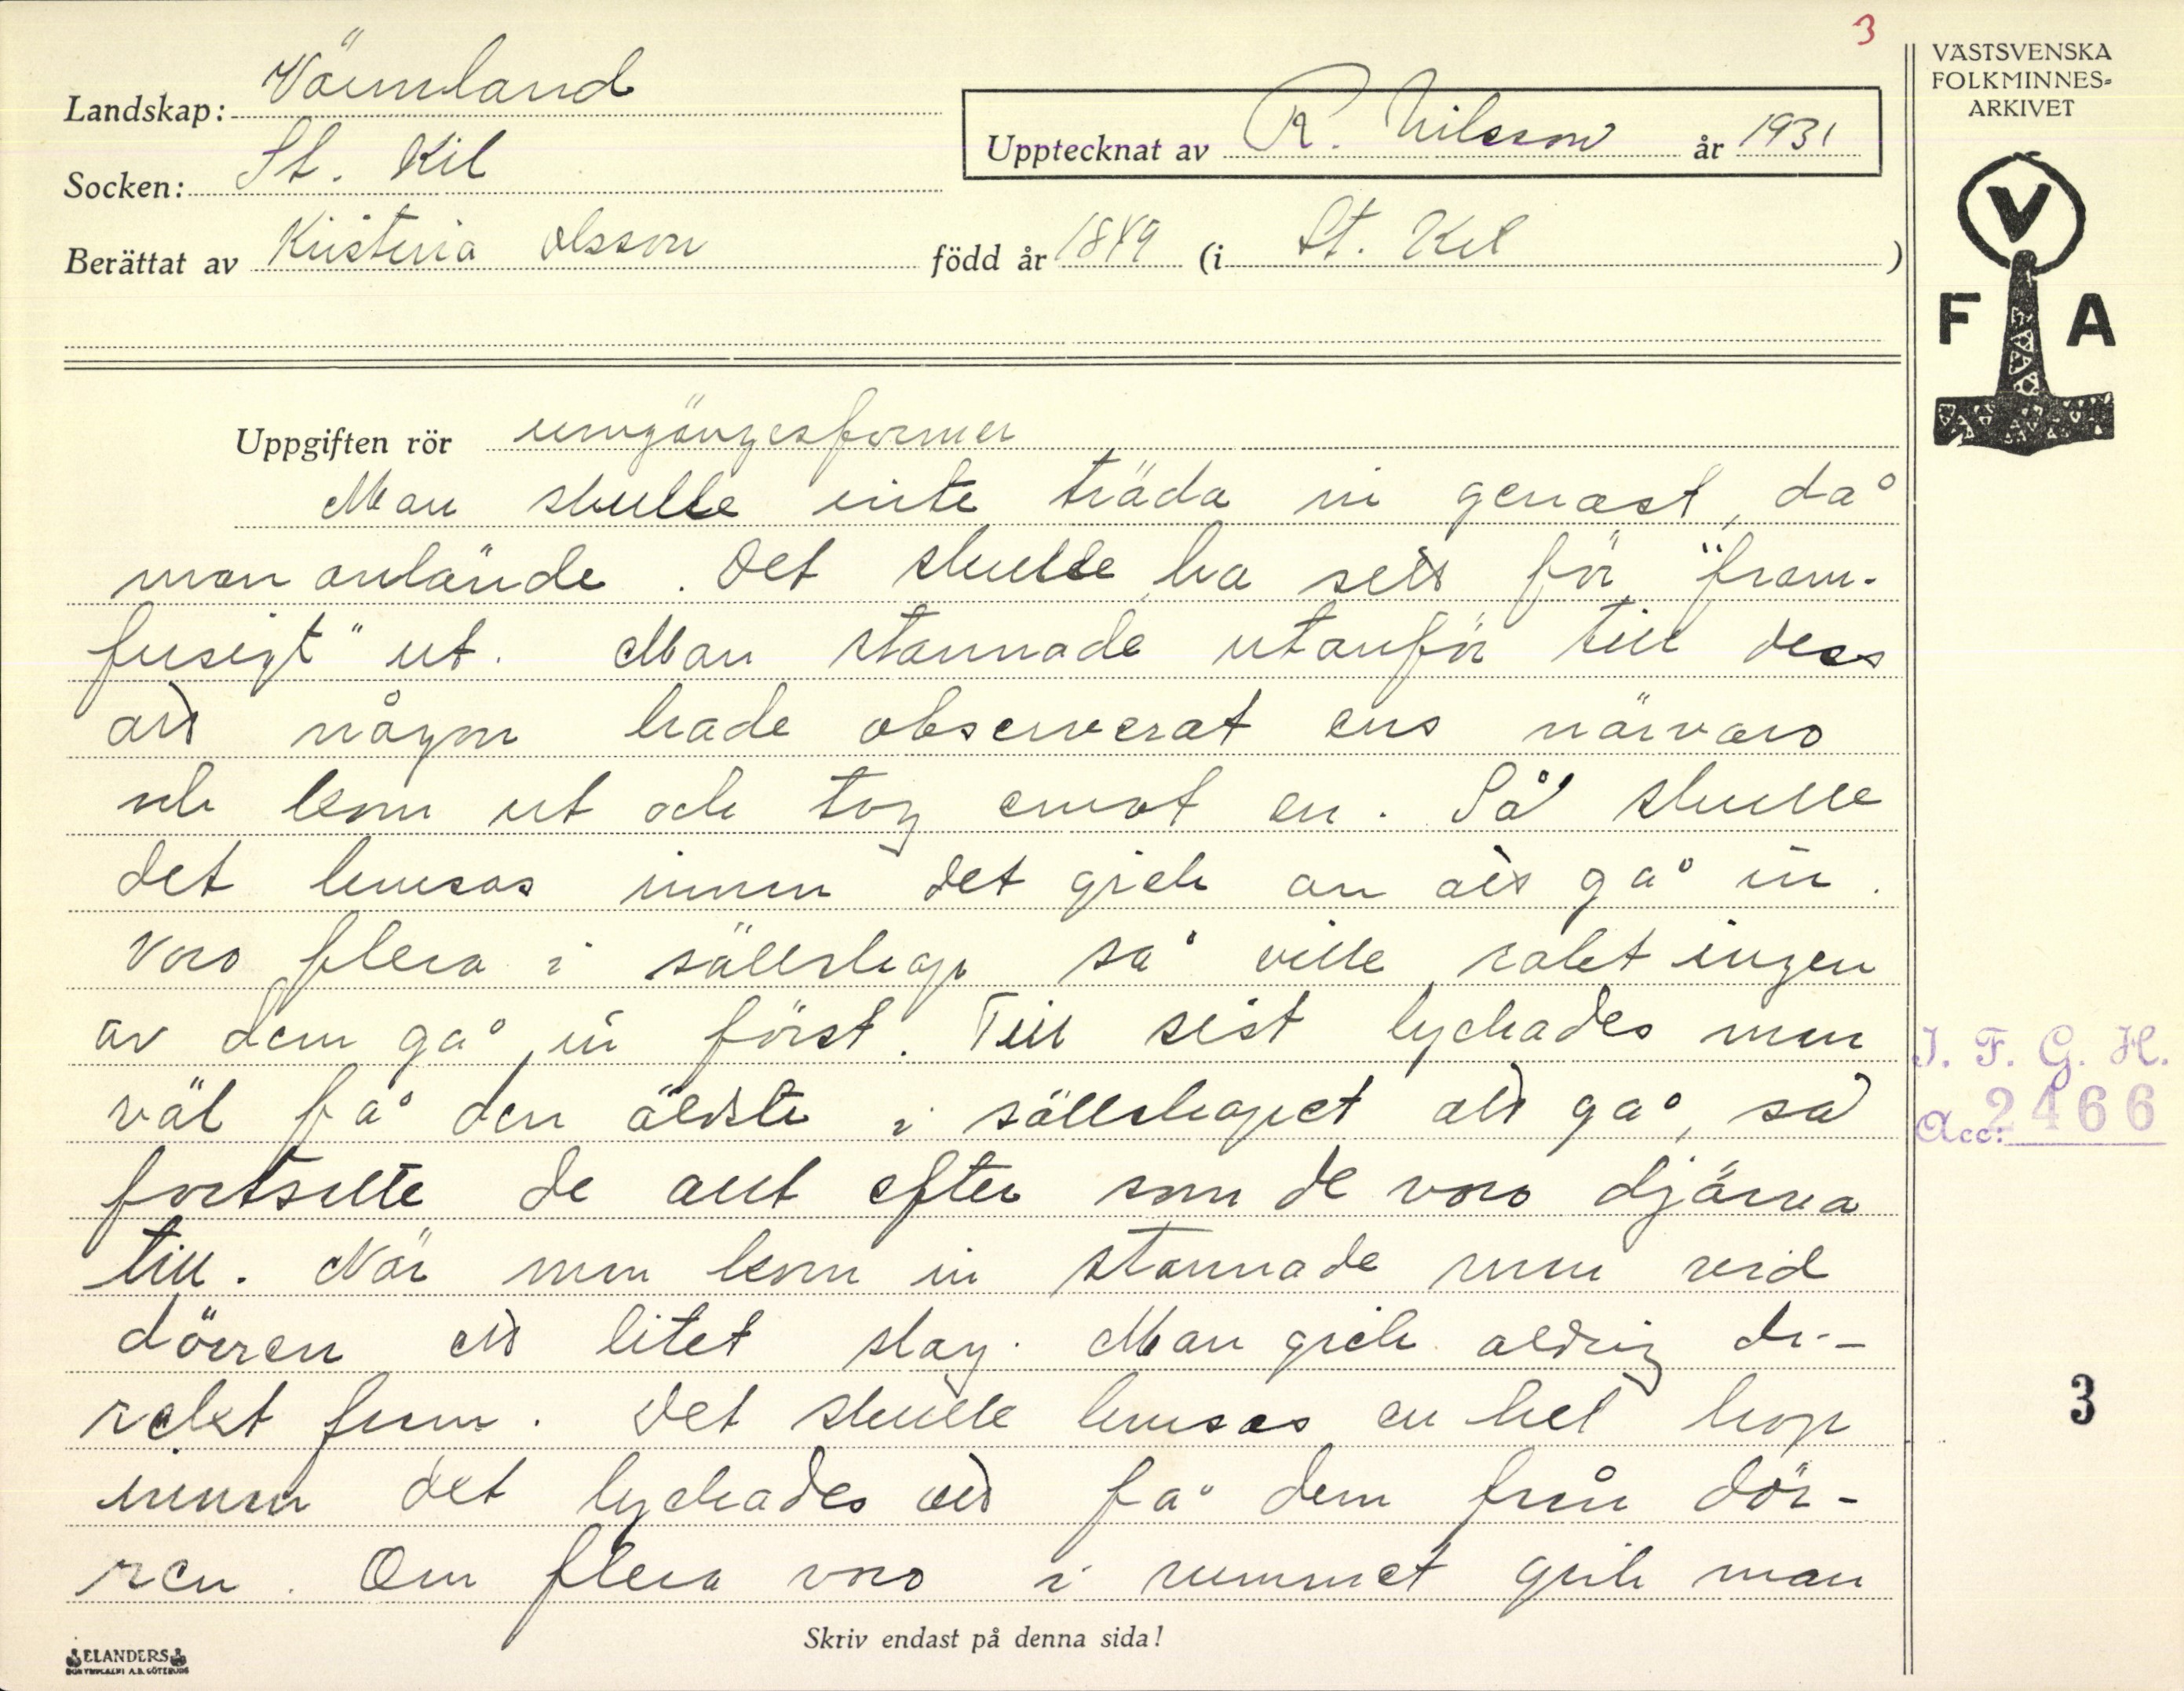 3
Landskap: Värmland
Socken: St. Kil
Berättat av Kristina Olsson född år 1849 (i St. Kil )
Upptecknat av R. Nilsson år 1931
VÄSTSVENSKA
FOLKMINNES-
ARKIVET
V
F A
Uppgiften rör umgängesformer
Man skulle inte träda in genast, då
man anlände. Det skulle ha sett för "fram-
fusigt" ut. Man stannade utanför till dess
att någon hade observerat ens närvaro
och kom ut och tog emot en. Så skulle
det krusas innan det gick an att gå in.
Voro flera i sällskap så ville rakt ingen
av dem gå in först. Till sist lyckades man
väl få den äldste i sällskapet att gå, så
fortsatte de allt efter som de voro djärva
till. När man kom in stannade man vid
dörren ett litet slag. Man gick aldrig di-
rekt fram. Det skulle krusas en hel hop
innan det lyckades att få dem från dör-
ren. Om flera voro i rummet gick man
I. F. G. H.
Acc: 2466
3
Skriv endast på denna sida!
ELANDERS